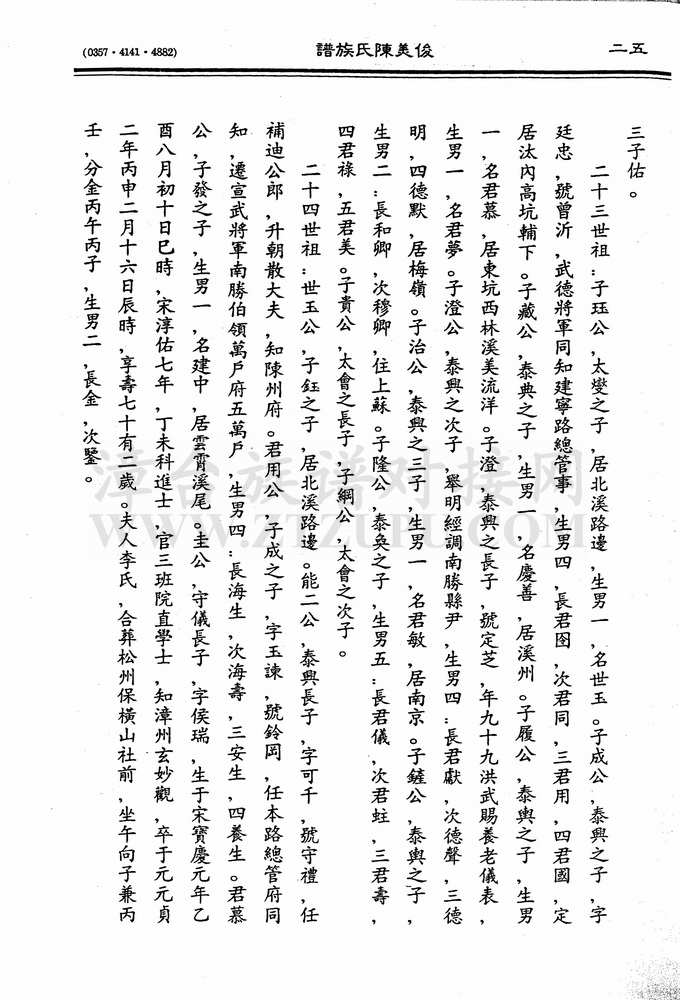 二五
俊美陳氏族譜
(0357・4141・4882)
三子佑。
二十三世祖：子珏公，太燮之子，居北溪路邊，生男一，名世玉。子成公，泰興之子，字
廷忠，號曾沂，武德將軍同知建寧路總管事，生男四，長君囹，次君同，三君用，四君國，定
居汰內高坑輔下。子藏公，泰典之子，生男一，名慶善，居溪州。子履公，泰輿之子，生男
一，名君慕，居東坑西林溪美流洋。子澄，泰興之長子，號定芝，年九十九洪武賜養老儀表，
生男一，名君夢。子澄公，泰興之次子，舉明經調南勝縣尹，生男四：長君獻，次德聲，三德
明，四德默，居梅嶺。子治公，泰興之三子，生男一，名君敏，居南京。子鏟公，泰輿之子，
生男二：長和卿，次穆卿，住上蘇。子隆公，泰奐之子，生男五：長君儀，次君蛀，三君壽，
四君祿，五君美。子貴公，太會之長子，子綱公，太會之次子。
二十四世祖：世玉公，子鈺之子，居北溪路邊。能二公，泰興長子，字可千，號守禮，任
補迪公郎，升朝散大夫，知陳州府。君用公，子成之子，字玉諫，號鈴岡，任本路總管府同
知，遷宣武將軍南勝伯領萬戶府五萬戶，生男四：長海生，次海壽，三安生，四養生。君慕
公，子發之子，生男一，名建中，居雲霄溪尾。圭公，守儀長子，字侯瑞，生于宋寶慶元年乙
酉八月初十日巳時，宋淳佑七年，丁未科進士，官三班院直學士，知漳州玄妙觀，卒于元元貞
二年丙申二月十六日辰時，享壽七十有二歲。夫人李氏，合葬松州保橫山社前，坐午向子兼丙
壬，分金丙午丙子，生男二，長金，次鑒。
漳台族谱对接网
WWW.ZTZUPU.COM